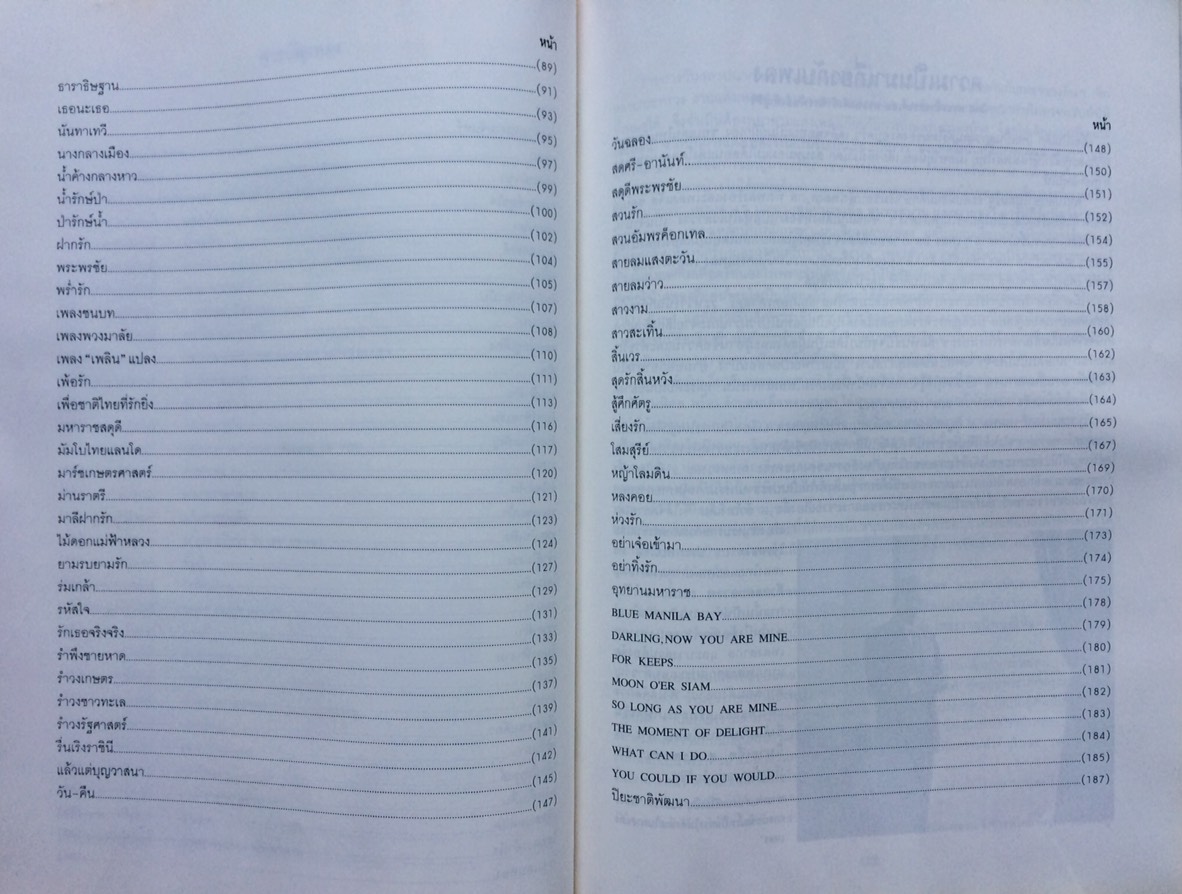 หน้า
ธาราธิษฐาน (89)
เธอนะเธอ (91)
นันทาเทวี (93)
นางกลางเมือง (95)
น้ำค้างกลางหาว (97)
น้ำรักษ์ป่า (99)
ป่ารักษ์น้ำ (100)
ฝากรัก (102)
พระพรชัย (104)
พร่ำรัก (105)
เพลงชนบท (107)
เพลงพวงมาลัย (108)
เพลง “เพลิน” แปลง (110)
เพ้อรัก (111)
เพื่อชาติไทยที่รักยิ่ง (113)
มหาราชสดุดี (116)
มัมโบไทยแลนโด (117)
มาร์ชเกษตรศาสตร์ (120)
ม่านราตรี (121)
มาลีฝากรัก (123)
ไม้ดอกแม่ฟ้าหลวง (124)
ยามรบยามรัก (127)
ร่มเกล้า (129)
รหัสใจ (131)
รักเธอจริงจริง (133)
รำพึงชายหาด (135)
รำวงเกษตร (137)
รำวงชาวทะเล (139)
รำวงรัฐศาสตร์ (141)
รื่นเริงราชินี (142)
แล้วแต่บุญวาสนา (145)
วัน-คืน (147)
หน้า
วันฉลอง (148)
สดศรี-อานันท์ (150)
สดุดีพระพรชัย (151)
สวนรัก (152)
สวนอัมพรค็อกเทล (154)
สายลมแสงตะวัน (155)
สายลมว่าว (157)
สาวงาม (158)
สาวสะเทิ้น (160)
สิ้นเวร (162)
สุดรักสิ้นหวัง (163)
สู้ศึกศัตรู (164)
เสี่ยงรัก (165)
โสมสุรีย์ (167)
หญ้าโลมดิน (169)
หลงคอย (170)
ห่วงรัก (171)
อย่าเจ๋อเข้ามา (173)
อย่าทิ้งรัก (174)
อุทยานมหาราช (175)
BLUE MANILA BAY (178)
DARLING,NOW YOU ARE MINE (179)
FOR KEEPS (180)
MOON O'ER SIAM (181)
SO LONG AS YOU ARE MINE (182)
THE MOMENT OF DELIGHT (183)
WHAT CAN I DO (184)
YOU COULD IF YOU WOULD (185)
ปิยะชาติพัฒนา (187)